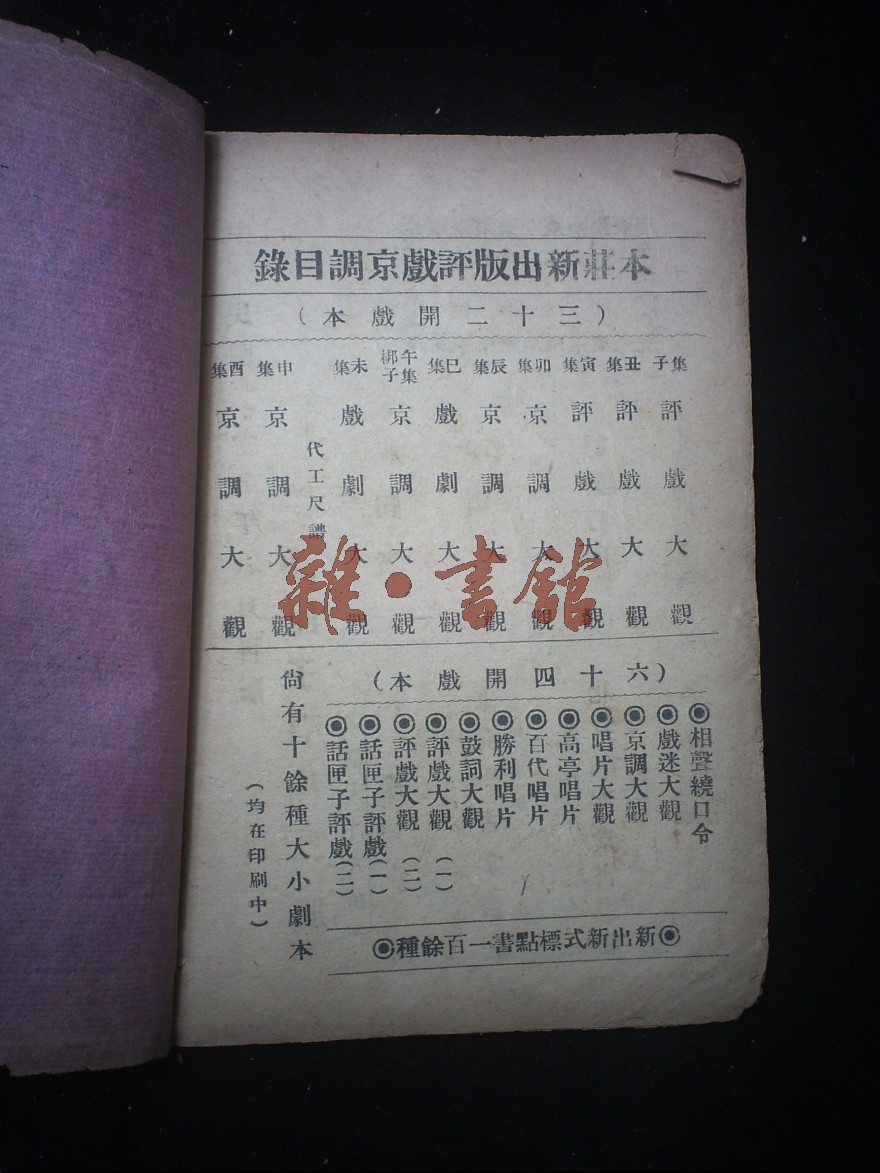 本莊新出版評戲京調目錄
（三十二開戲本）
子集 評戲大觀
丑集 評戲大觀
寅集 評戲大觀
卯集 京調大觀
辰集 京調大觀
巳集 戲劇大觀
午集 梆子 京調大觀
未集 戲劇大觀
代工尺譜
申集 京調大觀
酉集 京調大觀
（六十四開戲本）
◎相聲繞口令
◎戲迷大觀
◎京調大觀
◎唱片大觀
◎高亭唱片
◎百代唱片
◎勝利唱片
◎鼓詞大觀
◎評戲大觀（一）
◎評戲大觀（二）
◎話匣子評戲（一）
◎話匣子評戲（二）
尙有十餘種大小劇本
（均在印刷中）
◎新出新式標點書一百餘種◎
雜·書館